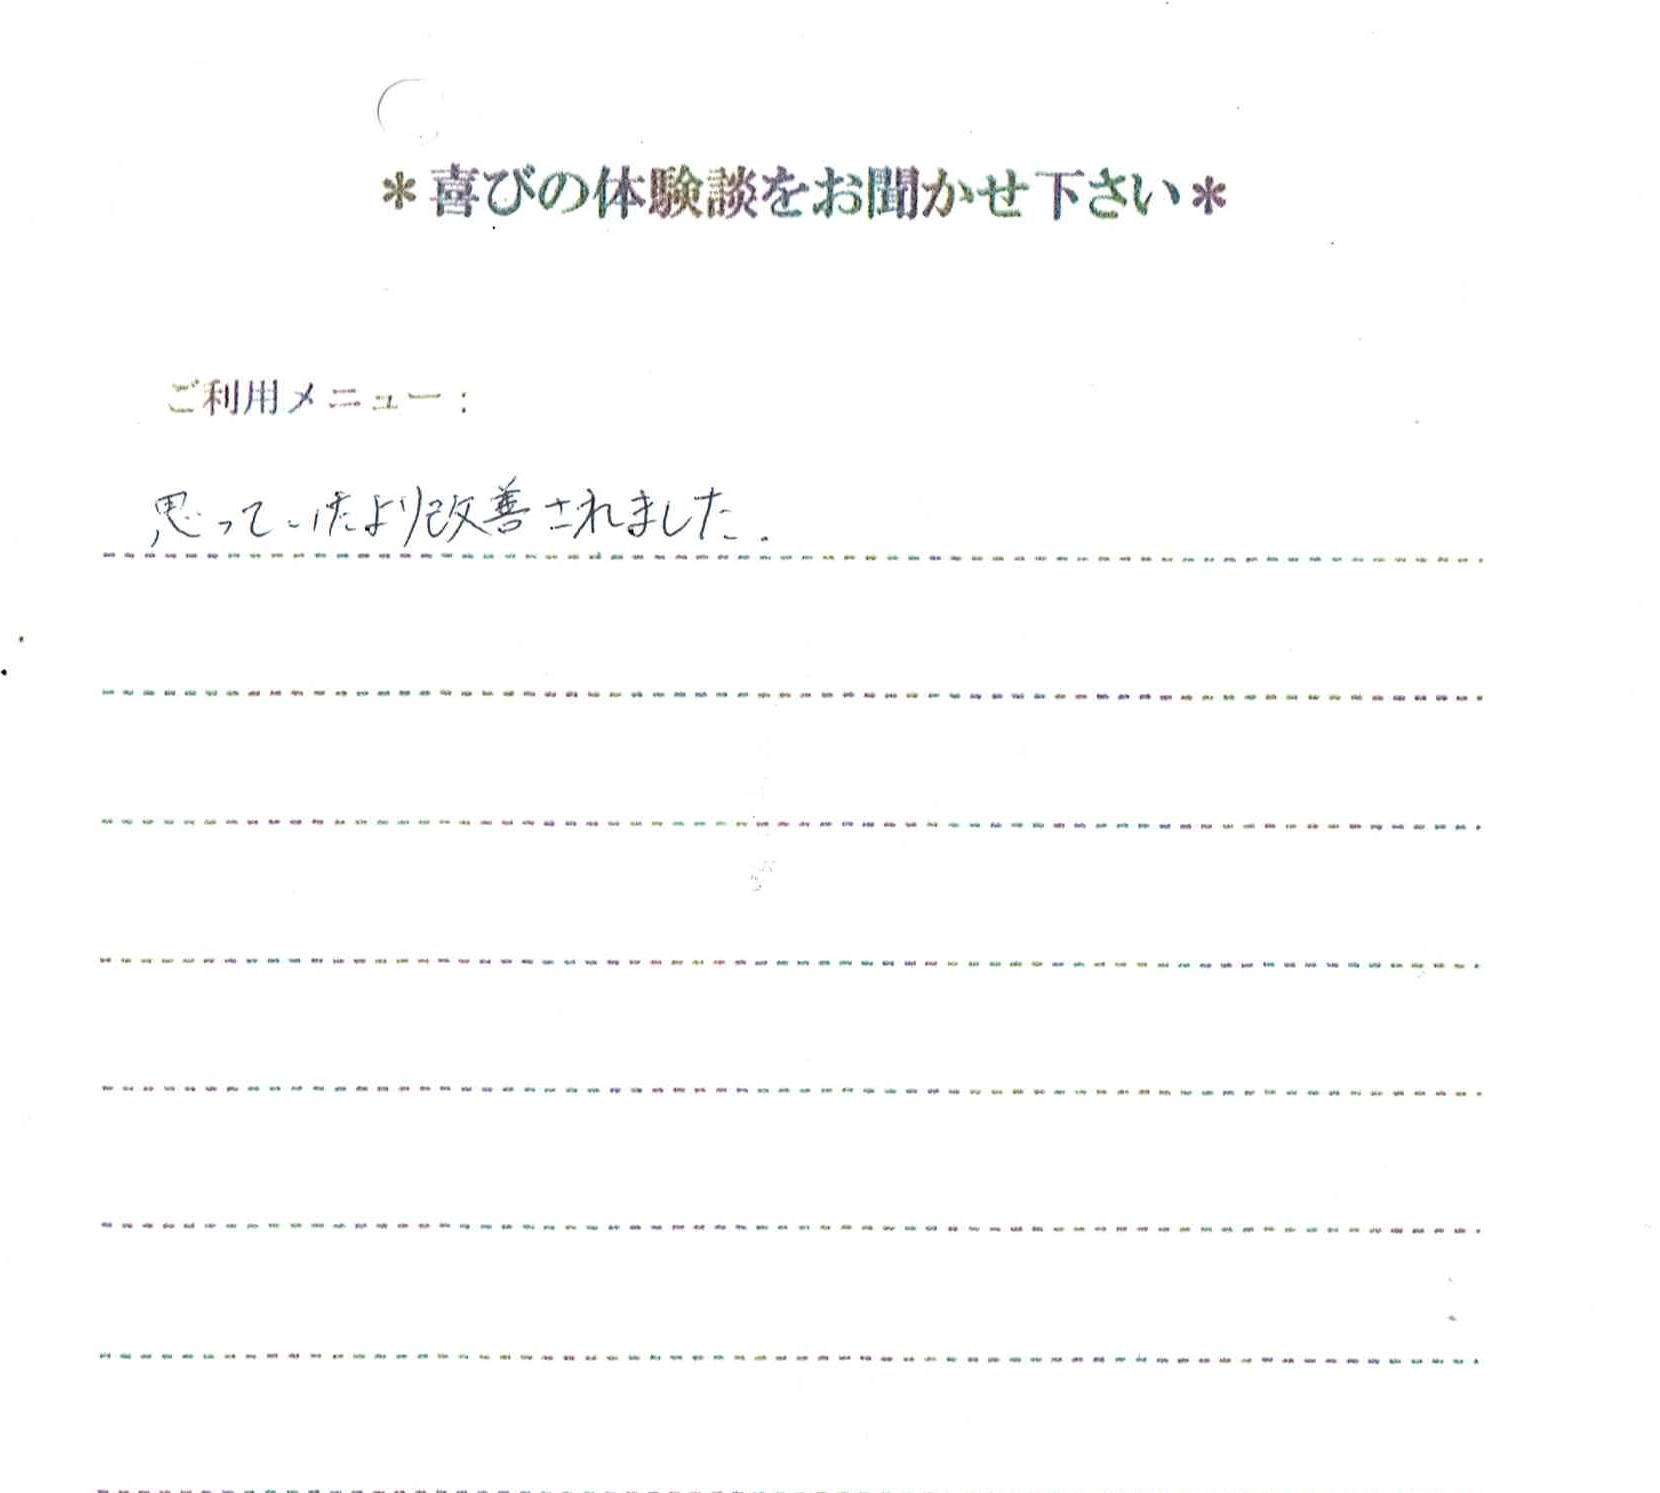 ＊喜びの体験談をお聞かせ下さい＊
ご利用メニュー：
思っていたより改善されました.